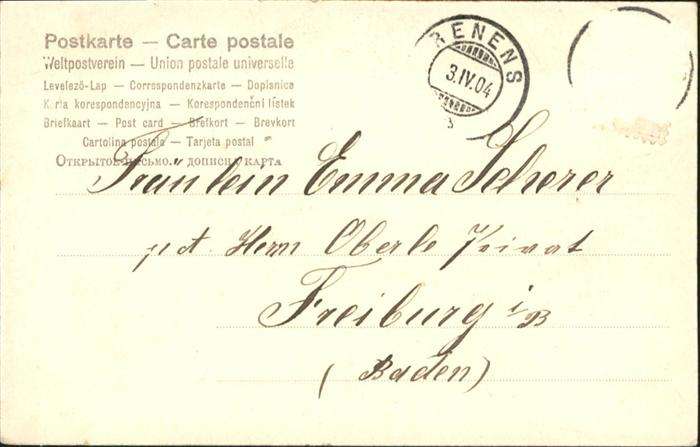 Postkarte — Carte postale
Weltpostverein — Union postale universelle
Levelező-Lap — Correspondenzkarte — Dopisnice
Karta korespondencyjna — Korespondenční lístek
Briefkaart — Post card — Brefkort — Brevkort
Cartolina postale — Tarjeta postal
Открытое письмо. дописна карта
RENENS
3.IV.04
Fräulein Emma Scherer
Herrn Oberle Privat
Freiburg i/B
(Baden)